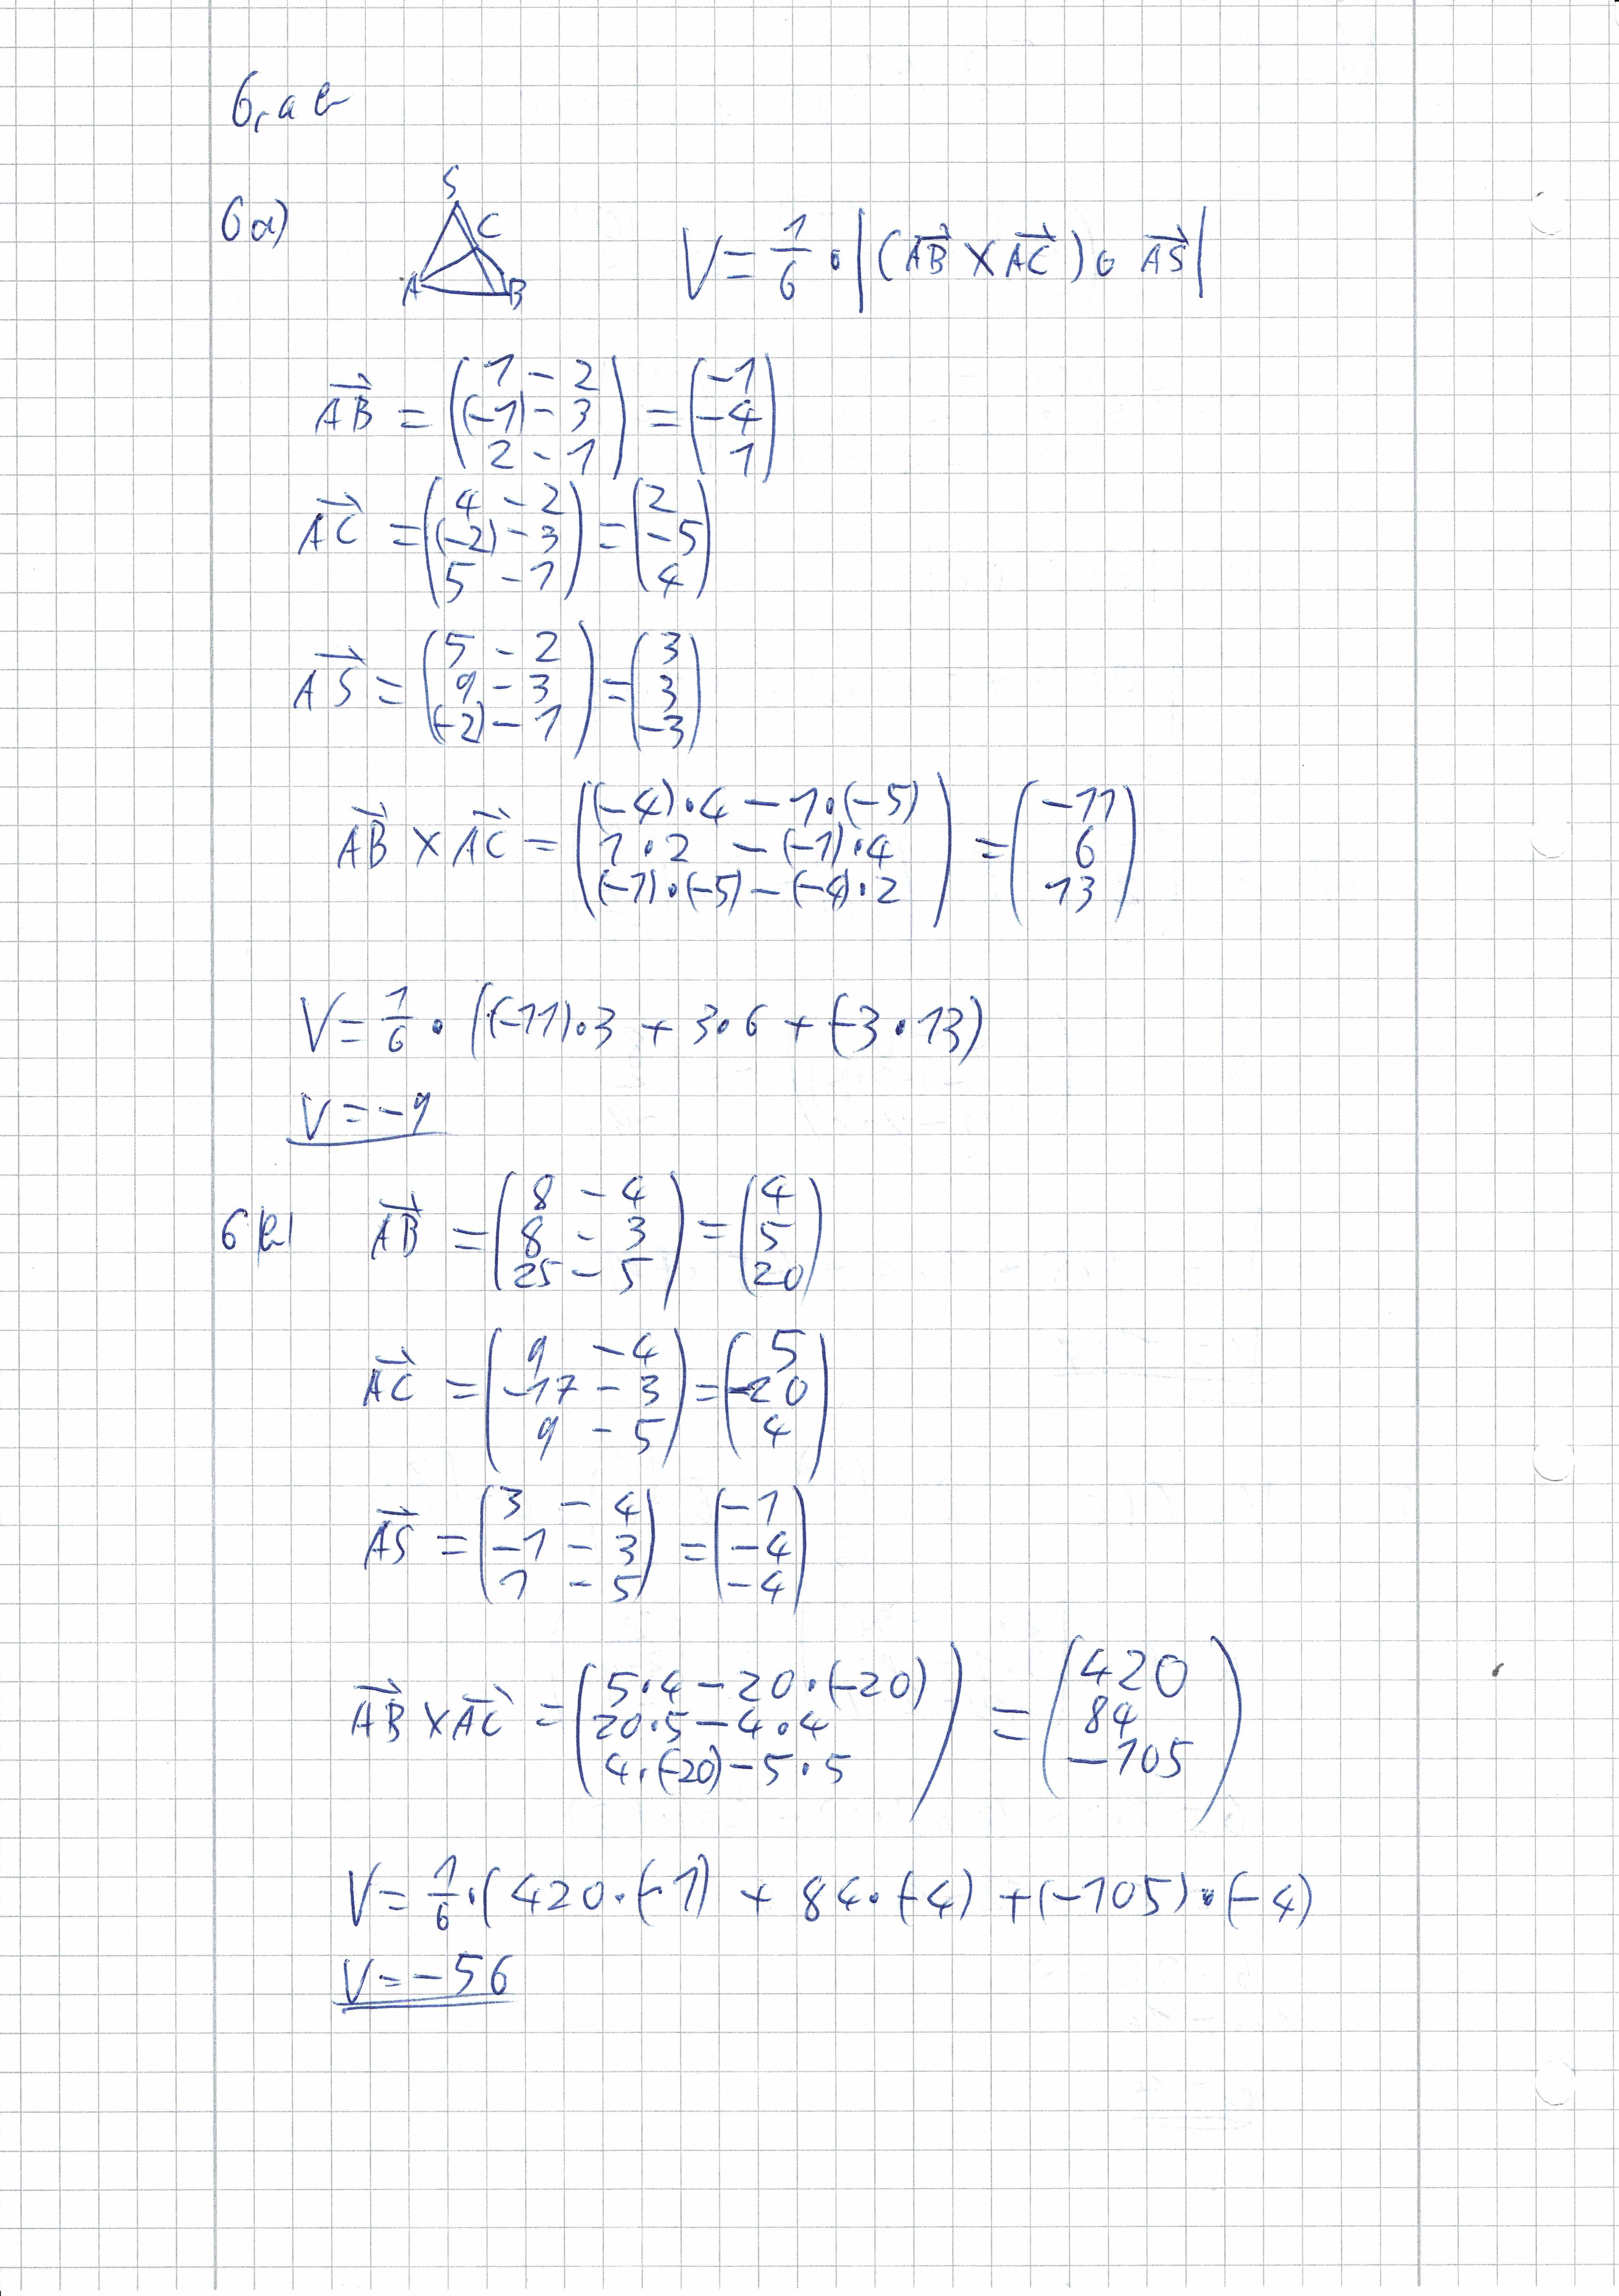 6, a b
6a) S C A B V = 1/6 · |(AB⃗ × AC⃗) ∘ AS⃗|
AB⃗ = (1 - 2; (-1) - 3; 2 - 1) = (-1; -4; 1)
AC⃗ = (4 - 2; (-2) - 3; 5 - 1) = (2; -5; 4)
AS⃗ = (5 - 2; 9 - 3; (-2) - 1) = (3; 3; -3)
AB⃗ × AC⃗ = ((-4)·4 - 1·(-5); 1·2 - (-1)·4; (-1)·(-5) - (-4)·2) = (-11; 6; 13)
V = 1/6 · ((-11)·3 + 3·6 + (-3·13)
V = -9
6b) AB⃗ = (8 - 4; 8 - 3; 25 - 5) = (4; 5; 20)
AC⃗ = (9 - 4; -17 - 3; 9 - 5) = (5; -20; 4)
AS⃗ = (3 - 4; -1 - 3; 1 - 5) = (-1; -4; -4)
AB⃗ × AC⃗ = (5·4 - 20·(-20); 20·5 - 4·4; 4·(-20) - 5·5) = (420; 84; -105)
V = 1/6 · (420·(-1) + 84·(-4) + (-105)·(-4)
V = -56